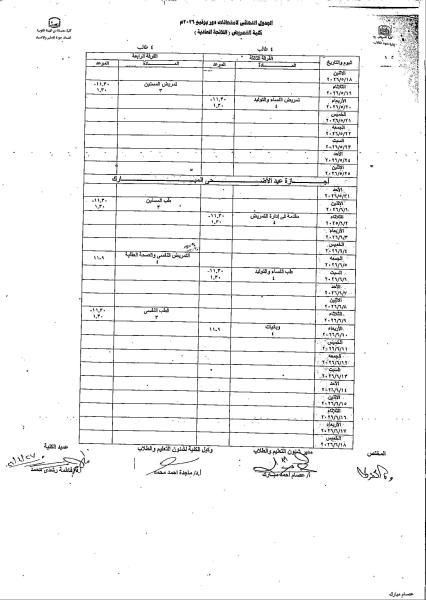 الجدول النهائي لامتحانات دور يونيو ٢٠٢٦م
كلية التمريض ( اللائحة العادية )
٤ طالب
٤ طالب
اليوم والتاريخ
الفرقة الثالثة
الفرقة الرابعة
المـــادة
الموعد
المـــادة
الموعد
الاثنين
٢٠٢٦/٥/١٨
الثلاثاء
٢٠٢٦/٥/١٩
تمريض المسنين
٣
١١,٣٠-
١,٣٠
الأربعاء
٢٠٢٦/٥/٢٠
تمريض النساء والتوليد
٤
١١,٣٠-
١,٣٠
الخميس
٢٠٢٦/٥/٢١
الجمعة
٢٠٢٦/٥/٢٢
السبت
٢٠٢٦/٥/٢٣
الأحد
٢٠٢٦/٥/٢٤
الاثنين
٢٠٢٦/٥/٢٥
أجـــازة عيد الأضـــحى المبـــارك
الأحد
٢٠٢٦/٥/٣١
الاثنين
٢٠٢٦/٦/١
طب المسنين
٣
١١,٣٠-
١,٣٠
الثلاثاء
٢٠٢٦/٦/٢
مقدمة فى إدارة التمريض
٤
١١,٣٠-
١,٣٠
الأربعاء
٢٠٢٦/٦/٣
الخميس
٢٠٢٦/٦/٤
الجمعة
٢٠٢٦/٦/٥
التمريض النفسى والصحة العقلية
٤
٩-١١
السبت
٢٠٢٦/٦/٦
طب النساء والتوليد
٤
١١,٣٠-
١,٣٠
الأحد
٢٠٢٦/٦/٧
الاثنين
٢٠٢٦/٦/٨
الثلاثاء
٢٠٢٦/٦/٩
الطب النفسى
٣
١١,٣٠-
١,٣٠
الأربعاء
٢٠٢٦/٦/١٠
وبائيات
٤
٩-١١
الخميس
٢٠٢٦/٦/١١
الجمعة
٢٠٢٦/٦/١٢
السبت
٢٠٢٦/٦/١٣
الأحد
٢٠٢٦/٦/١٤
الاثنين
٢٠٢٦/٦/١٥
الثلاثاء
٢٠٢٦/٦/١٦
الأربعاء
٢٠٢٦/٦/١٧
الخميس
٢٠٢٦/٦/١٨
المختص
مدير شئون التعليم والطلاب
وكيل الكلية لشئون التعليم والطلاب
عميد الكلية
أ/ عصام أحمد مبارك
أ.د/ ماجدة احمد محمد
أ.د/ فاطمة رشدى محمد
عصام مبارك